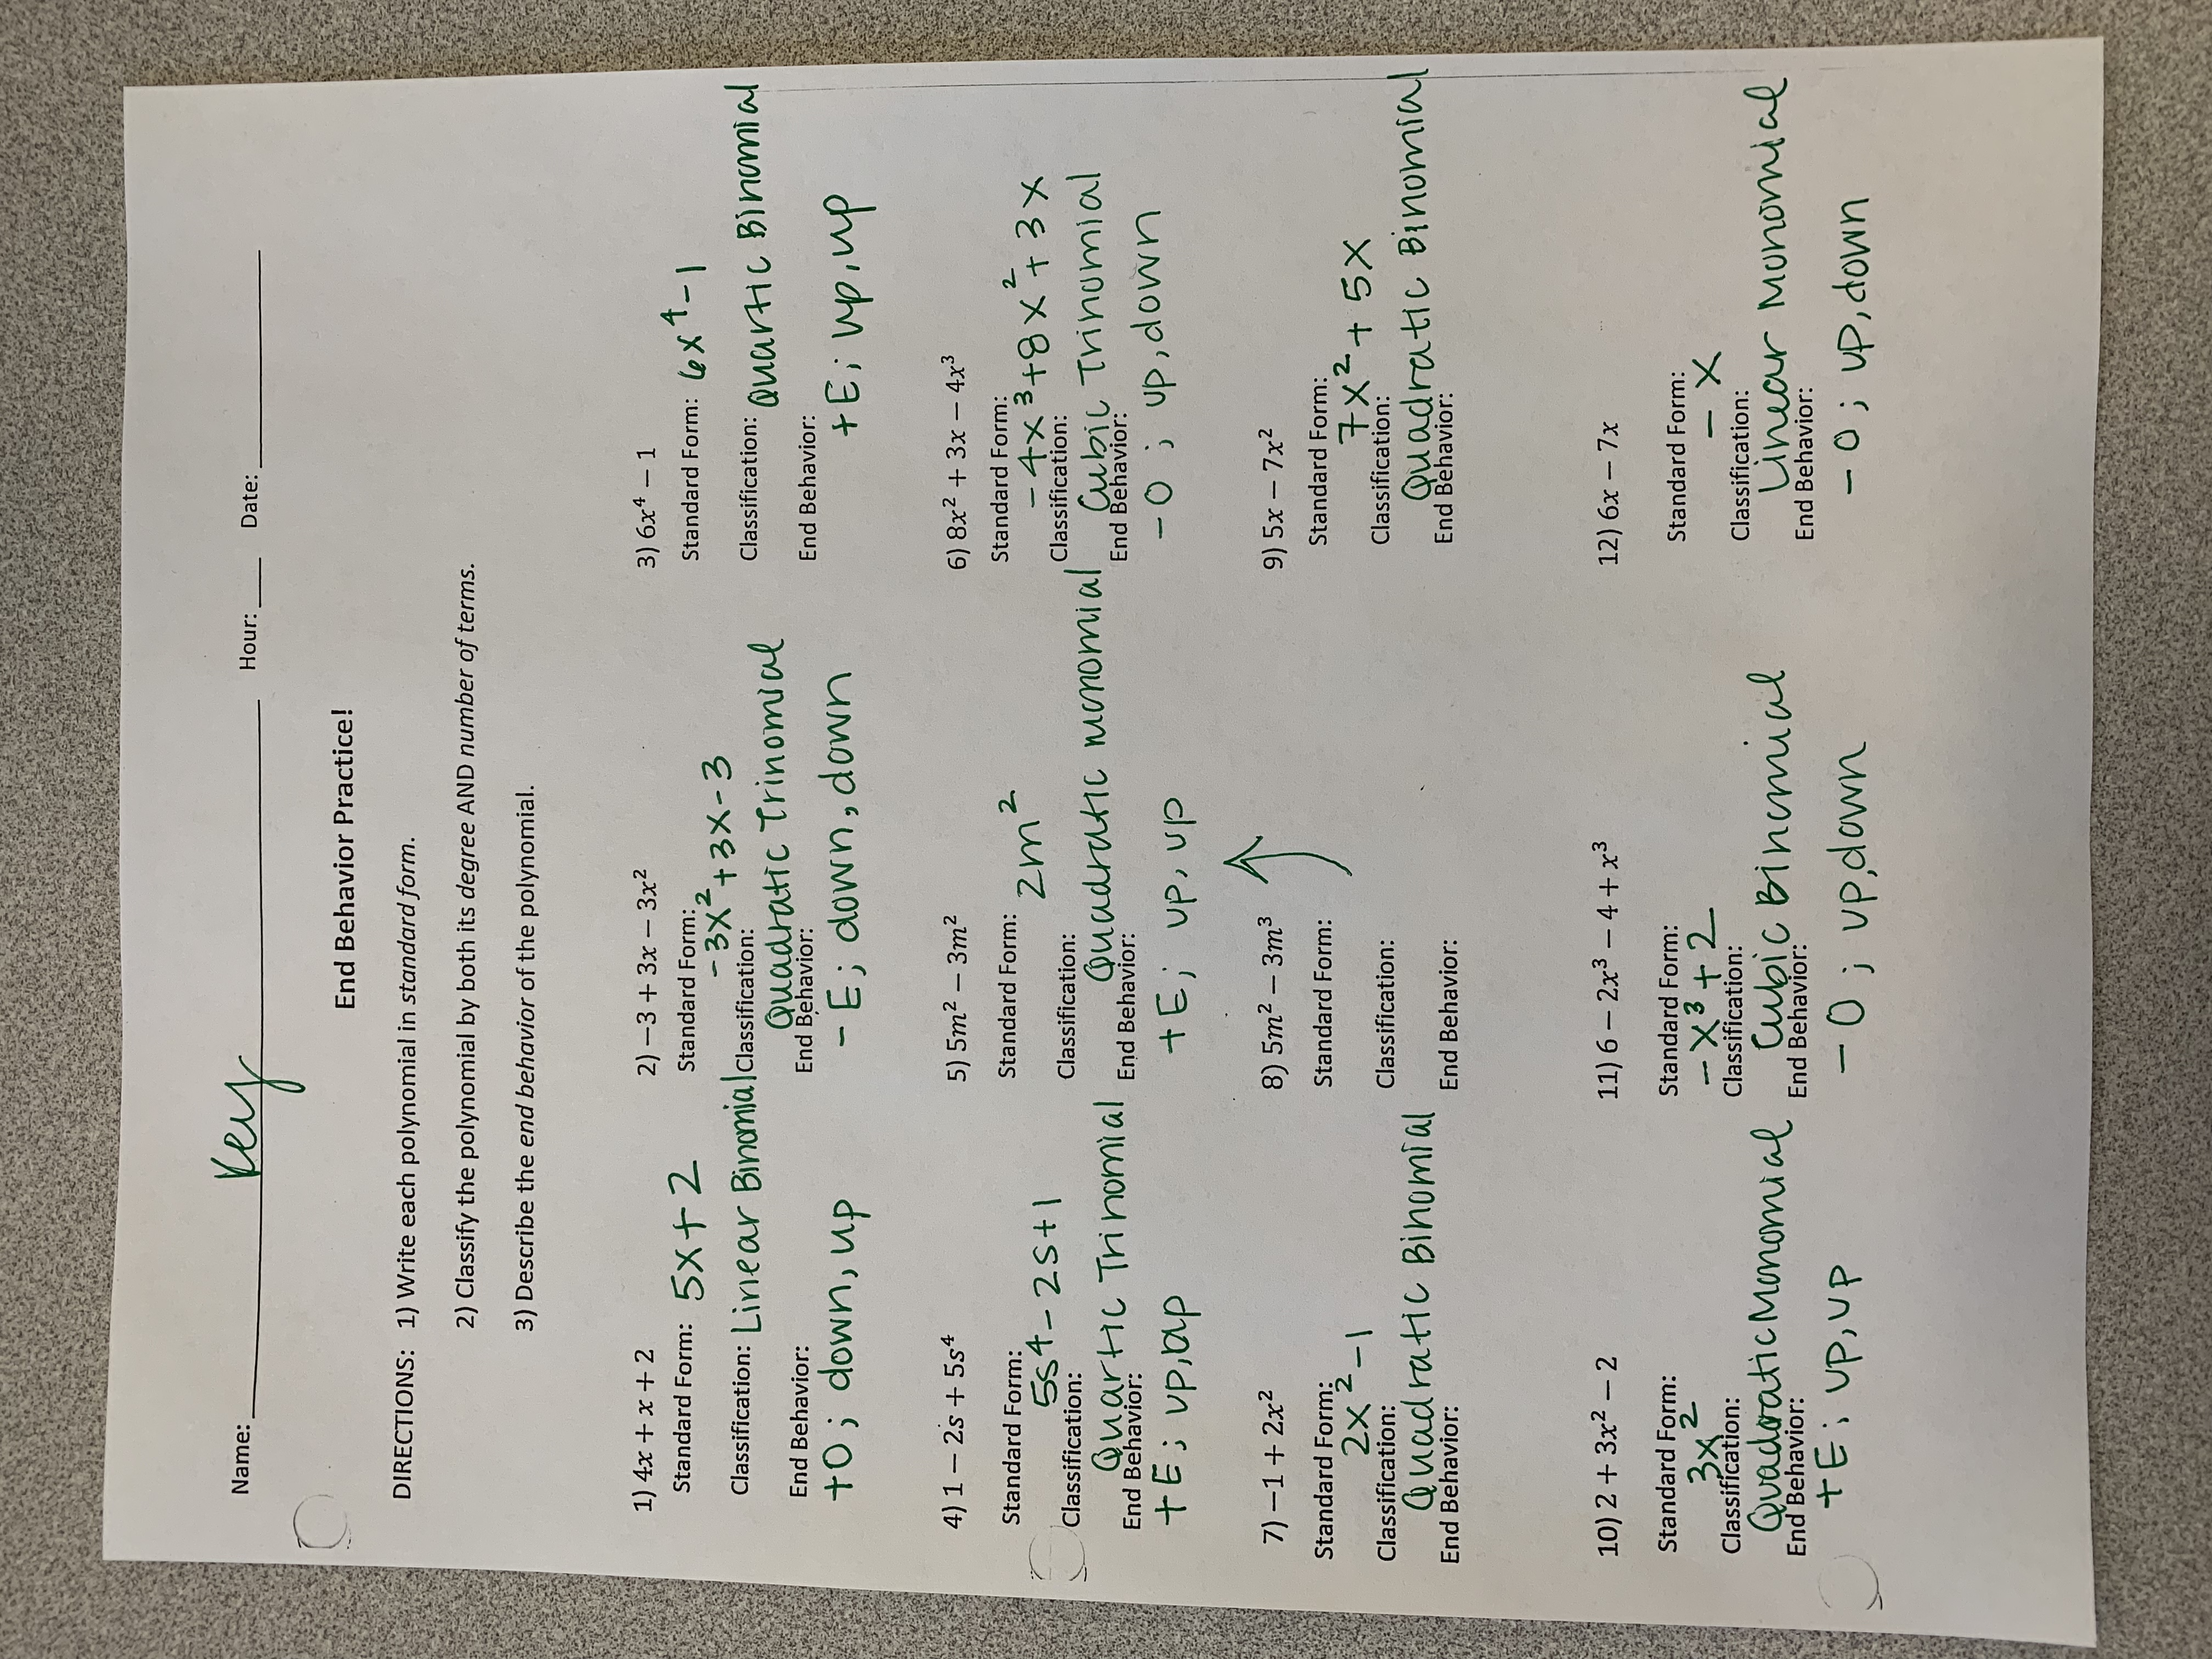 Name: Key Hour: ___ Date: ___
End Behavior Practice!
DIRECTIONS: 1) Write each polynomial in standard form.
2) Classify the polynomial by both its degree AND number of terms.
3) Describe the end behavior of the polynomial.
1) 4x + x + 2
Standard Form: 5x + 2
Classification: Linear Binomial
End Behavior:
+O; down, up
2) −3 + 3x − 3x²
Standard Form:
-3x² + 3x - 3
Classification:
Quadratic Trinomial
End Behavior:
- E; down, down
3) 6x⁴ − 1
Standard Form: 6x⁴ - 1
Classification: Quartic Binomial
End Behavior:
+E; up, up
4) 1 − 2s + 5s⁴
Standard Form:
5s⁴ - 2s + 1
Classification:
Quartic Trinomial
End Behavior:
+E; up, up
5) 5m² − 3m²
Standard Form: 2m²
Classification:
Quadratic monomial
End Behavior:
+E; up, up
6) 8x² + 3x − 4x³
Standard Form:
-4x³ + 8x² + 3x
Classification:
Cubic Trinomial
End Behavior:
-O; up, down
7) −1 + 2x²
Standard Form:
2x² - 1
Classification:
Quadratic Binomial
End Behavior:
8) 5m² − 3m³
Standard Form:
Classification:
End Behavior:
9) 5x − 7x²
Standard Form:
7x² + 5x
Classification:
Quadratic Binomial
End Behavior:
10) 2 + 3x² − 2
Standard Form:
3x²
Classification:
Quadratic Monomial
End Behavior:
+E; up, up
11) 6 − 2x³ − 4 + x³
Standard Form:
-x³ + 2
Classification:
Cubic Binomial
End Behavior:
-O; up, down
12) 6x − 7x
Standard Form:
-x
Classification:
Linear Monomial
End Behavior:
-O; up, down